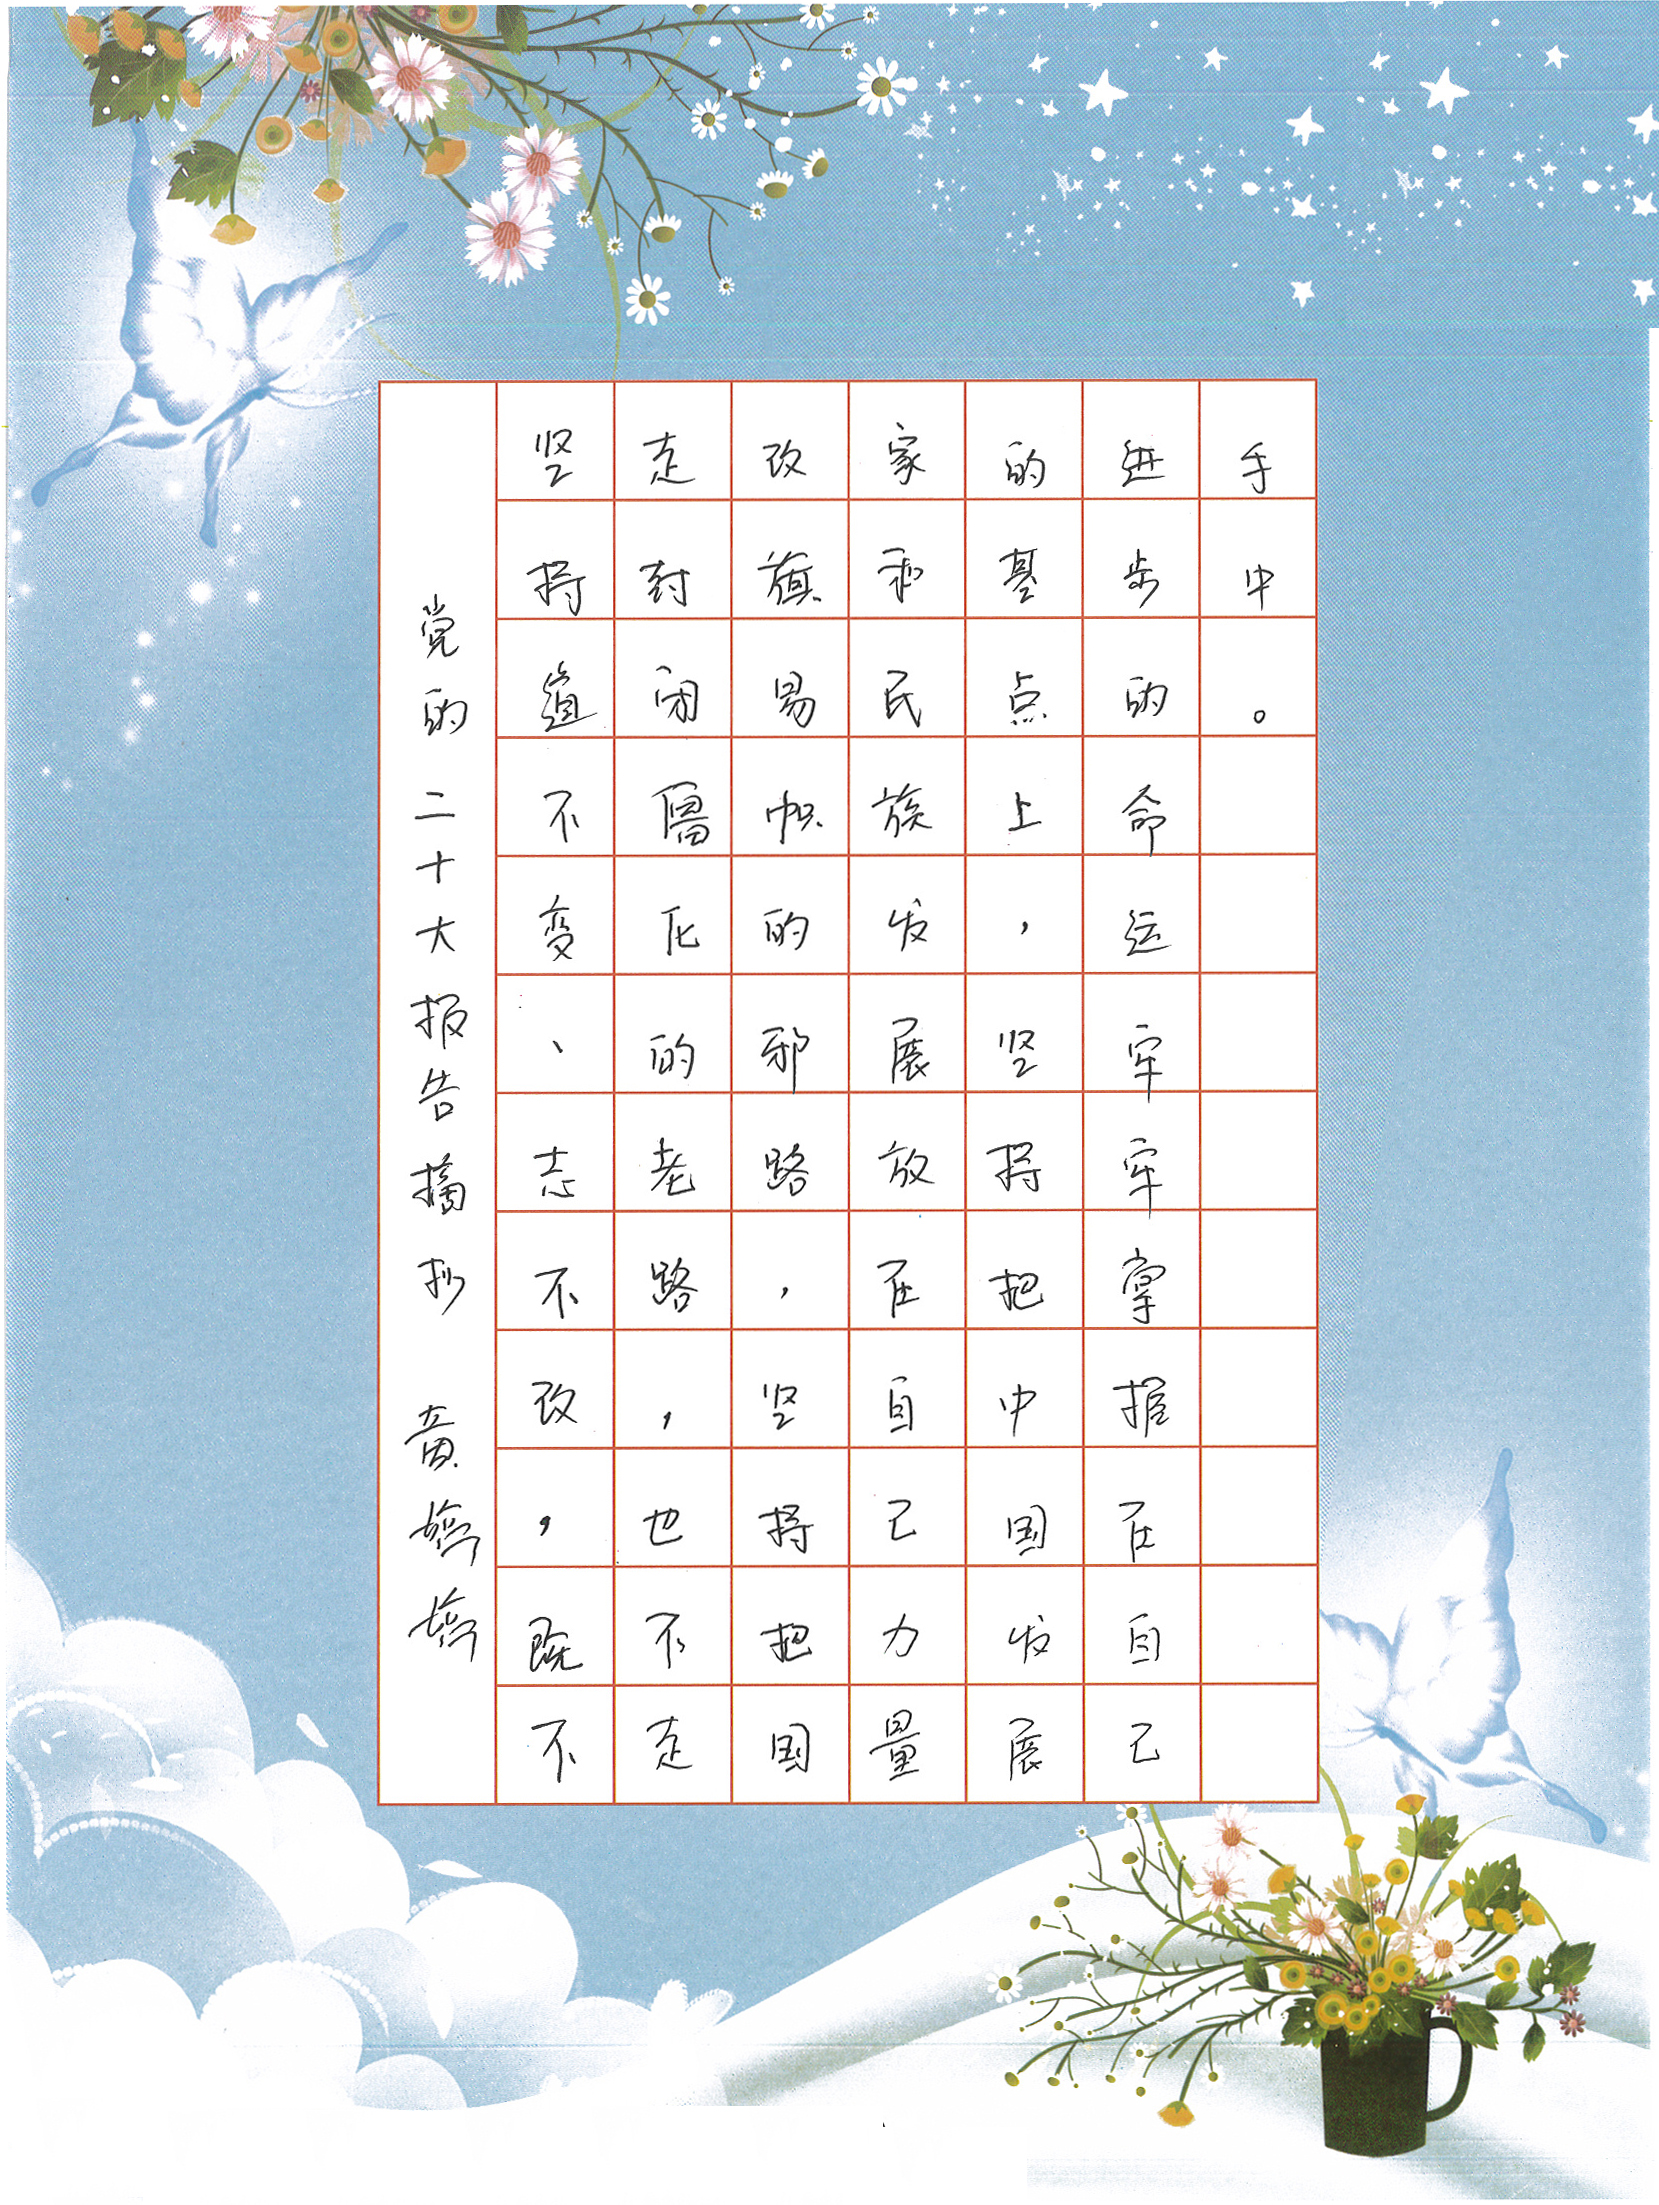 党的二十大报告摘抄 黄
坚持道不变、志不改，既不
走封闭僵化的老路，也不走
改旗易帜的邪路，坚持把国
家和民族发展放在自己力量
的基点上，坚持把中国发展
进步的命运牢牢掌握在自己
手中。